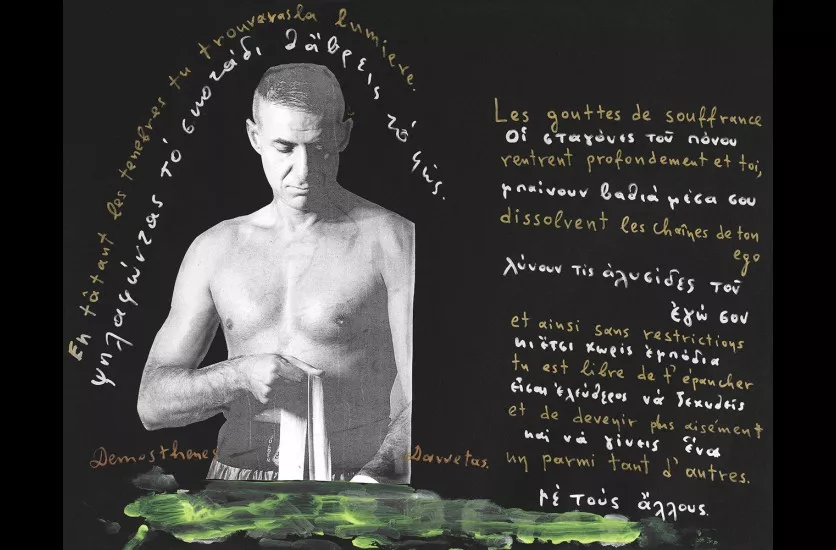 En tâtant les tenebres tu trouveras la lumiere.
ψηλαφώντας τό σκοτάδι θἄβρεις τό φῶς.
Les gouttes de souffrance
Οἱ σταγόνες τοῦ πόνου
rentrent profondement et toi,
μπαίνουν βαθιά μέσα σου
dissolvent les chaînes de ton
ego
λύνουν τις ἁλυσίδες τοῦ
ἐγώ σου
et ainsi sans restrictions
κι ἔτσι χωρίς ἐμπόδια
tu est libre de t'épancher
εἶσαι ἐλεύθερος νά ξεχυθεῖς
et de devenir plus aisément
καί νά γίνεις ἕνα
un parmi tant d'autres.
μέ τούς ἄλλους.
Demosthenes Davvetas.